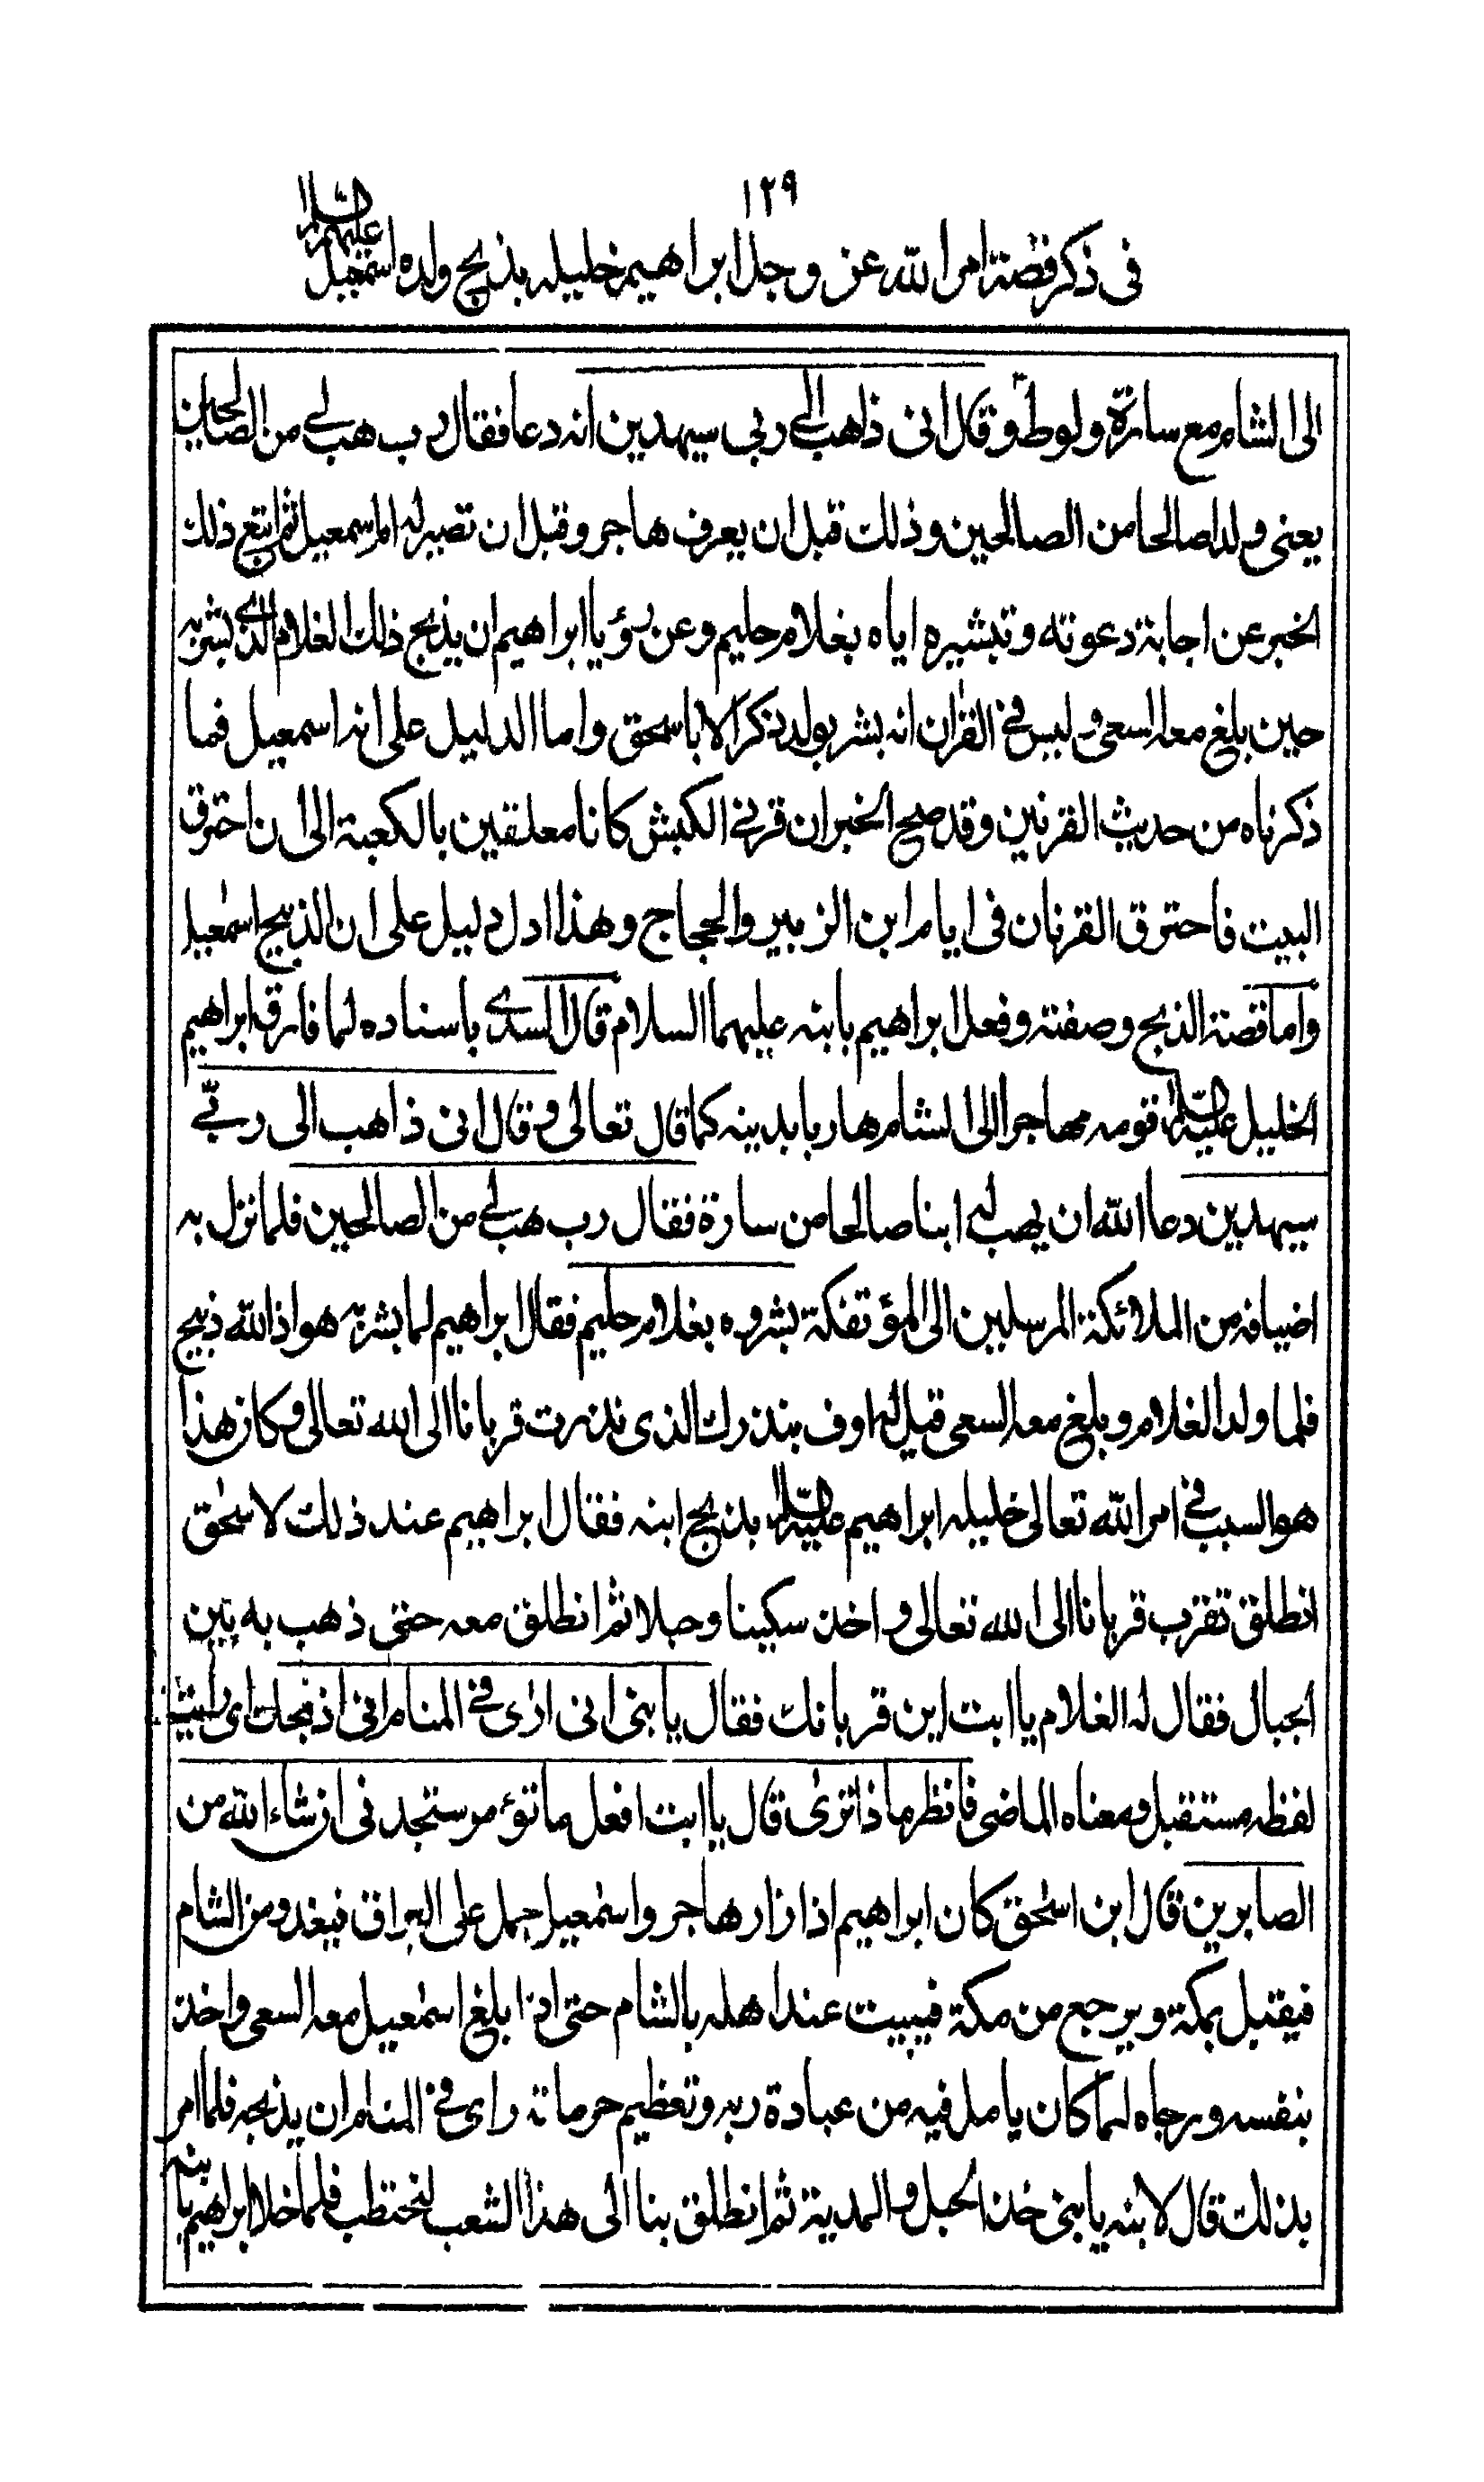 ١٢٩
في ذكر قصة امر الله عز وجل ابراهيم خليله بذبح ولده اسمعيل عليهم السلام
الى الشام مع سارة ولوط وقال انى ذاهب الى ربى سيهدين انه دعا فقال رب هب لي من الصالحين
يعنى ولدا صالحا من الصالحين وذلك قبل ان يعرف هاجر وقبل ان تصير له ام اسمعيل ثم اتبع ذلك
الخبر عن اجابة دعوته وتبشيره اياه بغلام حليم وعن رؤيا ابراهيم ان يذبح ذلك الغلام الذي بشر به
حين بلغ معه السعى وليس في القرأن انه بشر بولد ذكر الا باسحق واما الدليل على انه اسمعيل فما
ذكرناه من حديث القرنين وقد صح الخبر ان قرني الكبش كانا معلقين بالكعبة الى ان احترق
البيت فاحترق القرنان فى ايام ابن الزبير والحجاج وهذا ادل دليل على ان الذبيح اسمٰعيل
واما قصة الذبح وصفته وفعل ابراهيم بابنه عليهما السلام قال السدي باسناده لما فارق ابراهيم
الخليل عليه السلام قومه مهاجرا الى الشام هاربا بدينه كما قال تعالى وقال انى ذاهب الى ربّي
سيهدين دعا الله ان يهب له ابنا صالحا من سارة فقال رب هب لي من الصالحين فلما نزل به
اضيافه من الملائكة المرسلين الى المؤتفكة بشروه بغلام حليم فقال ابراهيم لما بشر به هو اذا لله ذبيح
فلما ولد الغلام وبلغ معه السعى قيل له اوف بنذرك الذى نذرت قربانا الى الله تعالى وكان هذا
هو السبب في امر الله تعالى خليله ابراهيم عليه السلام بذبح ابنه فقال ابراهيم عند ذلك لاسحٰق
انطلق تقرب قربانا الى الله تعالى واخذ سكينا وحبلا ثم انطلق معه حتى ذهب به بين
الجبال فقال له الغلام يا ابت اين قربانك فقال يا بنى انى ارٰى في المنام انى اذبحك اى رايت
لفظه مستقبل ومعناه الماضى فانظر ماذا ترٰى قال يا ابت افعل ما تؤمر ستجدنى ان شاء الله من
الصابرين قال ابن اسحٰق كان ابراهيم اذا زار هاجر واسمٰعيل حمل على البراق فيغدو من الشام
فيقيل بمكة ويرجع من مكة فيبيت عند اهله بالشام حتى اذا بلغ اسمٰعيل معه السعى واخذ
بنفسه ورجاه لما كان يامل فيه من عبادة ربه وتعظيم حرماته راى في المنام ان يذبحه فلما امر
بذلك قال لابنه يا بنى خذ الحبل والمدية ثم انطلق بنا الى هذا الشعب لنحتطب فلما خلا ابراهيم بابنه